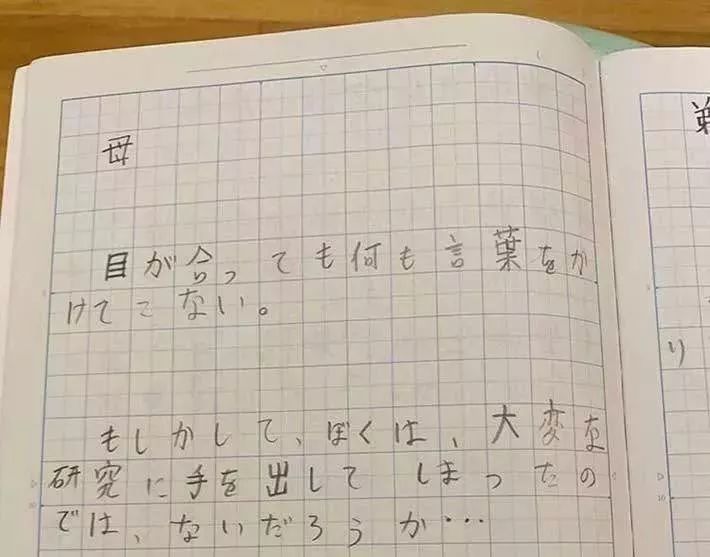 母
目が合っても何も言葉をか
けてこない。
もしかして、ぼくは、大変な
研究に手を出してしまったの
では、ないだろうか…
り